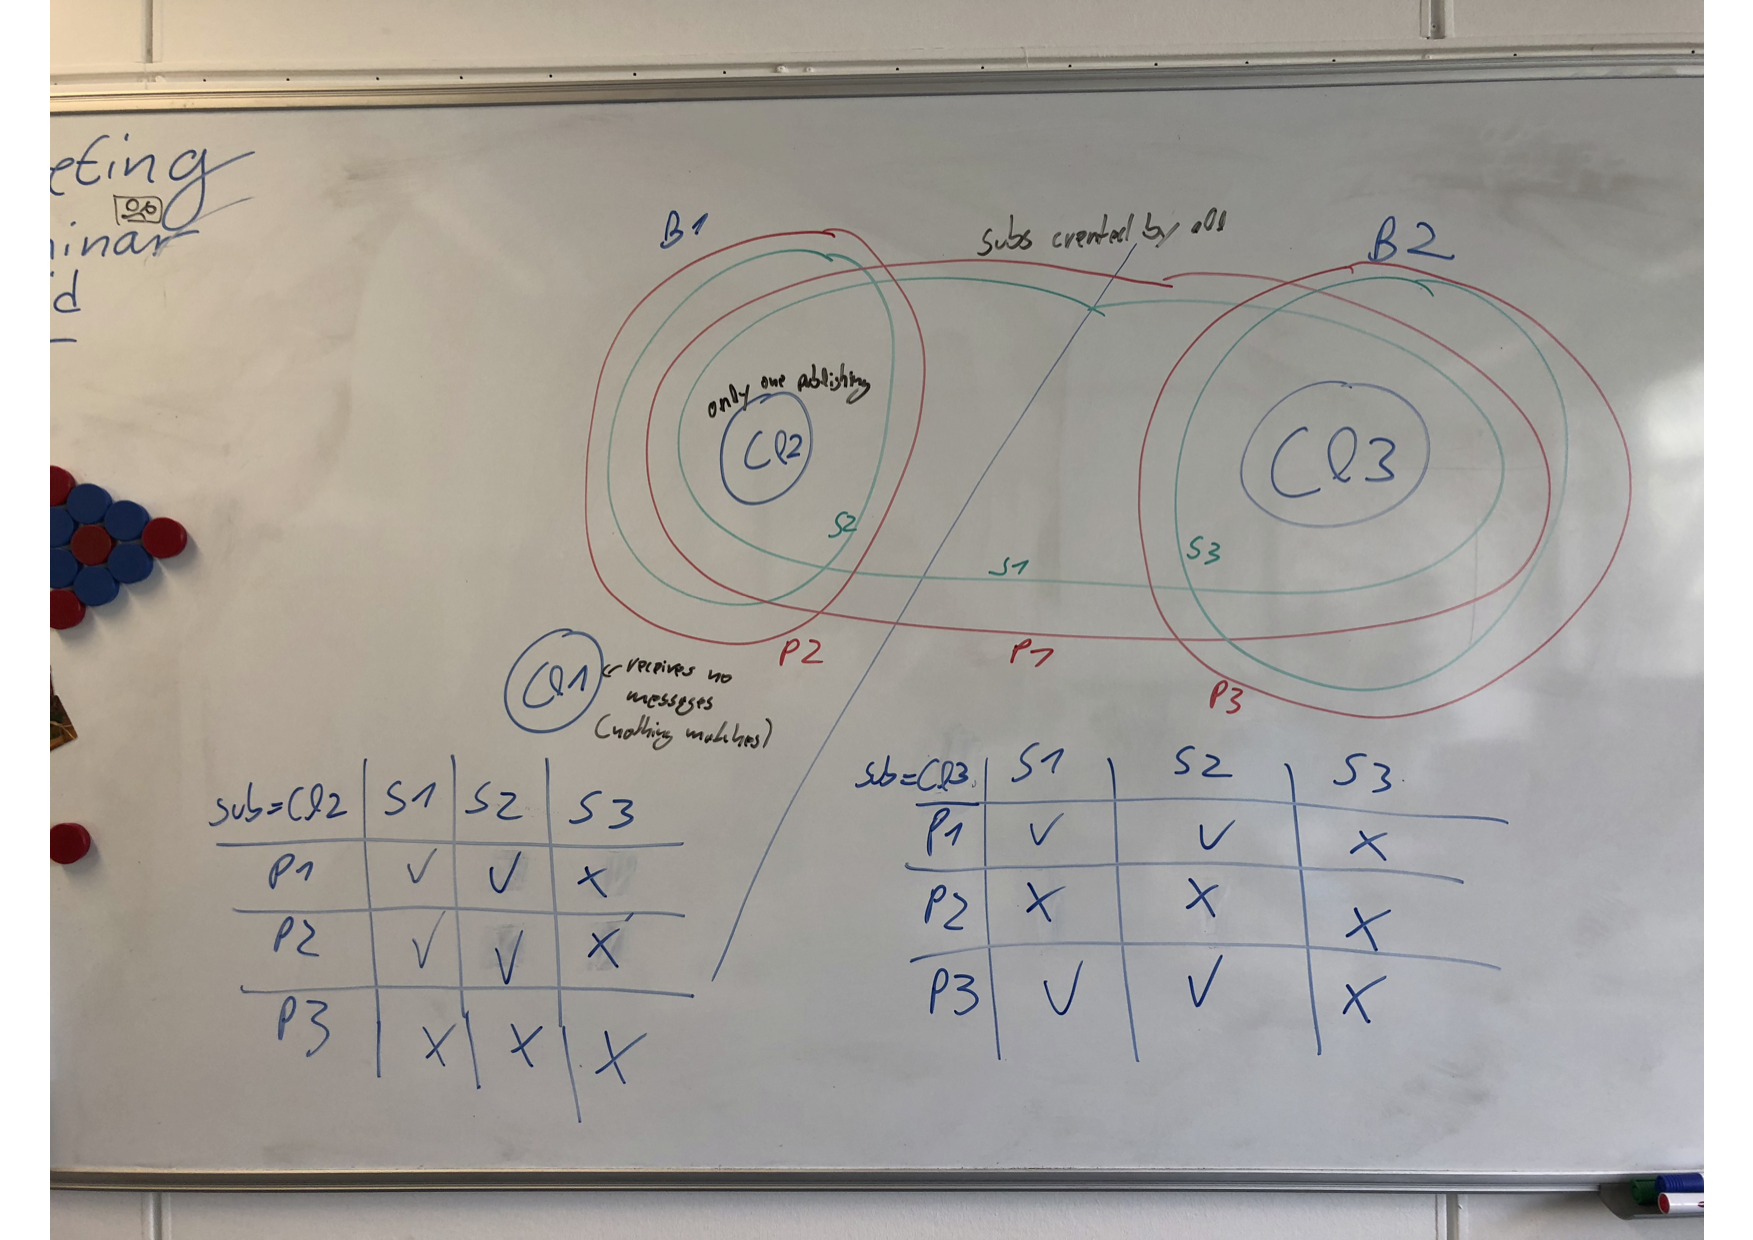 eting
inar
d
B1
subs created by all
B2
only one publishing
Cl2
Cl3
S2
S1
S3
P2
P1
P3
Cl1
← receives no
messages
(nothing matches)
sub=Cl2 S1 S2 S3
P1 ✓ ✓ X
P2 ✓ ✓ X
P3 X X X
sub=Cl3 S1 S2 S3
P1 ✓ ✓ X
P2 X X X
P3 ✓ ✓ X